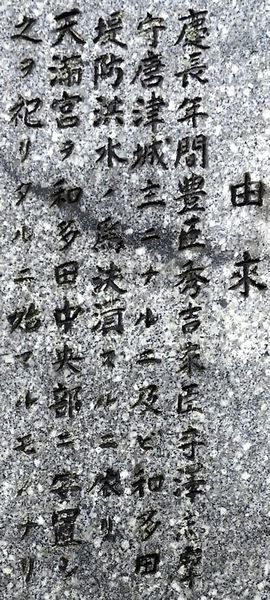 由來
慶長年間豊臣秀吉家臣寺澤志摩
守唐津城主ニナルニ及ビ和多田
堤防洪水ノ爲決潰スルニ依リ
天満宮ヲ和多田中央部ニ安置シ
之ヲ祀リタルニ始マルモノナリ